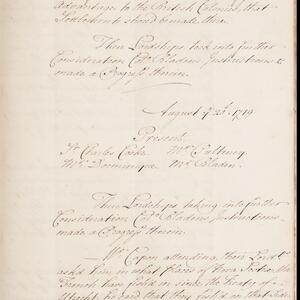 Advantage to the British Colonies, that
Settlements should be made there.
Their Lordships took into further
Consideration Col. Bladen's Instructions &
made a Progress therein.
August ye 25t. 1719
Present.
Sr. Charles Cooke Mr. Pulteney
Mr. Dominique Mr. Bladen.
Their Lordships taking into further
Consideration Col. Bladen's Instructions,
made a Progress therein.
Upon attending, their Lordps.
ask'd him in what Places of Nova Scotia the
French have fish'd in since the Treaty of
Utrecht, he said that they fish'd on that